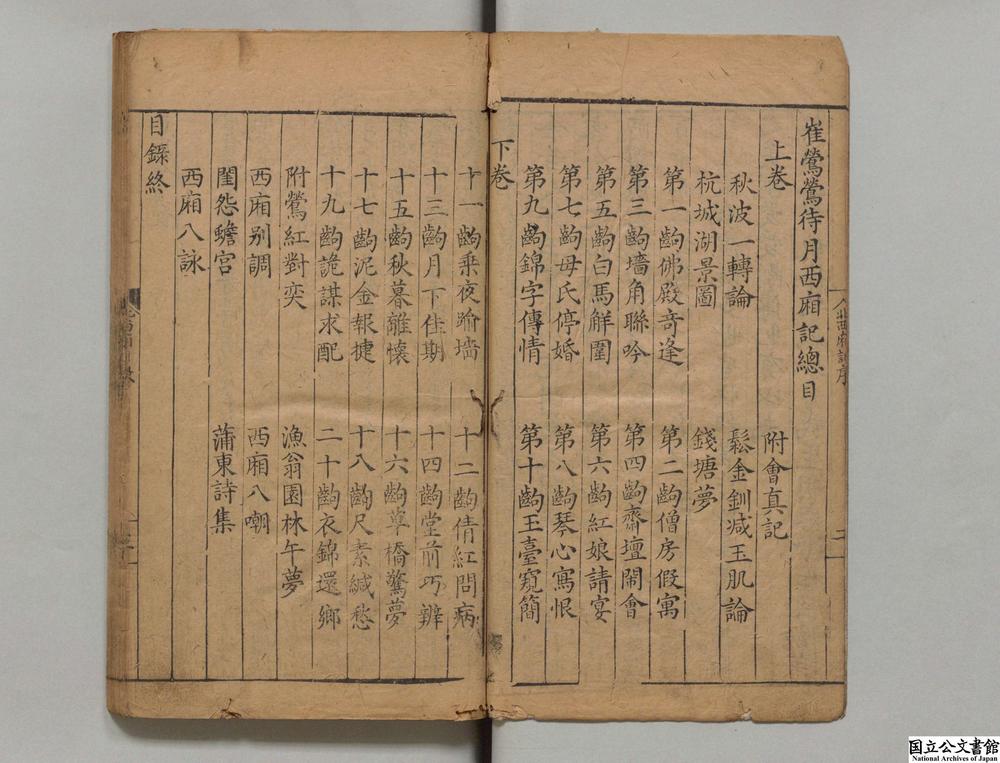 崔鶯鶯待月西廂記總目
上卷 附會真記
秋波一轉論 鬆金釧减玉肌論
杭城湖景圖 錢塘夢
第一齣佛殿奇逢 第二齣僧房假寓
第三齣墻角聯吟 第四齣齋壇閙會
第五齣白馬解圍 第六齣紅娘請宴
第七齣母氏停婚 第八齣琴心寫恨
第九齣錦字傳情 第十齣玉臺窺簡
下卷
十一齣乗夜踰墻 十二齣倩紅問病
十三齣月下佳期 十四齣堂前巧辨
十五齣秋暮離懷 十六齣草橋驚夢
十七齣泥金報捷 十八齣尺素緘愁
十九齣詭謀求配 二十齣衣錦還鄉
附鶯紅對奕 漁翁園林午夢
西廂别調 西廂八嘲
閨怨蟾宫 蒲東詩集
西廂八詠
目錄終
国立公文書館
National Archives of Japan